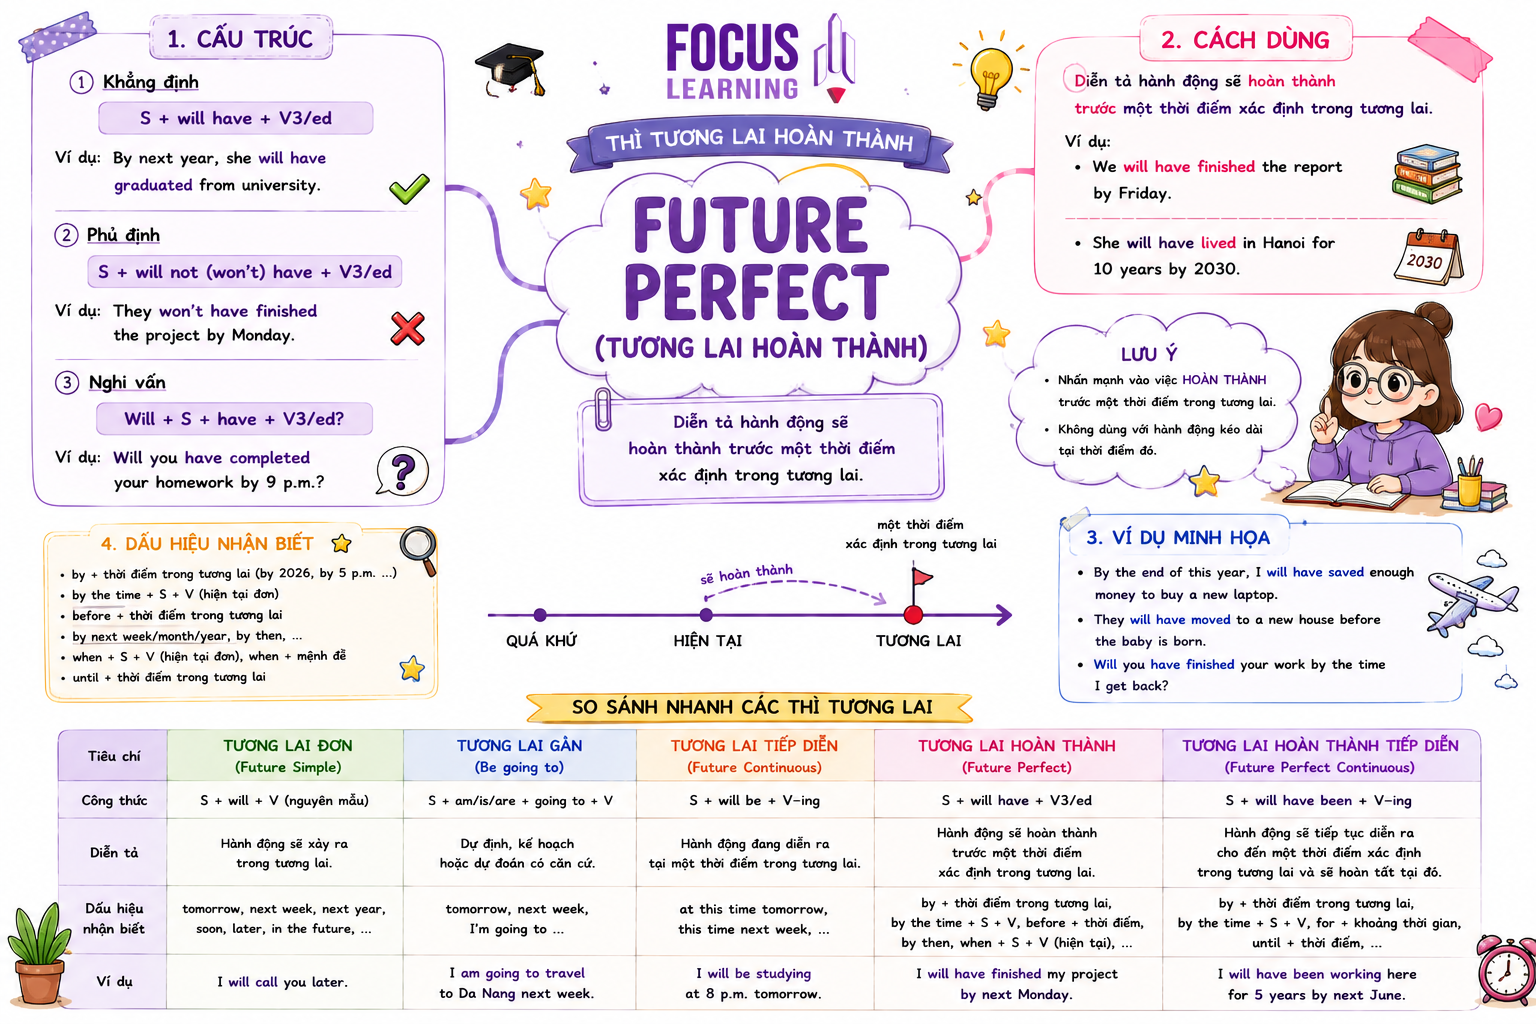 FOCUS
LEARNING
THÌ TƯƠNG LAI HOÀN THÀNH
FUTURE
PERFECT
(TƯƠNG LAI HOÀN THÀNH)
Diễn tả hành động sẽ
hoàn thành trước một thời điểm
xác định trong tương lai.
1. CẤU TRÚC
1 Khẳng định
S + will have + V3/ed
Ví dụ: By next year, she will have
graduated from university.
2 Phủ định
S + will not (won't) have + V3/ed
Ví dụ: They won't have finished
the project by Monday.
3 Nghi vấn
Will + S + have + V3/ed?
Ví dụ: Will you have completed
your homework by 9 p.m.?
?
2. CÁCH DÙNG
Diễn tả hành động sẽ hoàn thành
trước một thời điểm xác định trong tương lai.
Ví dụ:
• We will have finished the report
by Friday.
• She will have lived in Hanoi for
10 years by 2030.
2030
LƯU Ý
• Nhấn mạnh vào việc HOÀN THÀNH
trước một thời điểm trong tương lai.
• Không dùng với hành động kéo dài
tại thời điểm đó.
3. VÍ DỤ MINH HỌA
• By the end of this year, I will have saved enough
money to buy a new laptop.
• They will have moved to a new house before
the baby is born.
• Will you have finished your work by the time
I get back?
4. DẤU HIỆU NHẬN BIẾT
• by + thời điểm trong tương lai (by 2026, by 5 p.m. ...)
• by the time + S + V (hiện tại đơn)
• before + thời điểm trong tương lai
• by next week/month/year, by then, ...
• when + S + V (hiện tại đơn), when + mệnh đề
• until + thời điểm trong tương lai
một thời điểm
xác định trong tương lai
sẽ hoàn thành
QUÁ KHỨ HIỆN TẠI TƯƠNG LAI
SO SÁNH NHANH CÁC THÌ TƯƠNG LAI
Tiêu chí
TƯƠNG LAI ĐƠN
(Future Simple)
TƯƠNG LAI GẦN
(Be going to)
TƯƠNG LAI TIẾP DIỄN
(Future Continuous)
TƯƠNG LAI HOÀN THÀNH
(Future Perfect)
TƯƠNG LAI HOÀN THÀNH TIẾP DIỄN
(Future Perfect Continuous)
Công thức
S + will + V (nguyên mẫu)
S + am/is/are + going to + V
S + will be + V-ing
S + will have + V3/ed
S + will have been + V-ing
Diễn tả
Hành động sẽ xảy ra
trong tương lai.
Dự định, kế hoạch
hoặc dự đoán có căn cứ.
Hành động đang diễn ra
tại một thời điểm trong tương lai.
Hành động sẽ hoàn thành
trước một thời điểm
xác định trong tương lai.
Hành động sẽ tiếp tục diễn ra
cho đến một thời điểm xác định
trong tương lai và sẽ hoàn tất tại đó.
Dấu hiệu
nhận biết
tomorrow, next week, next year,
soon, later, in the future, ...
tomorrow, next week,
I'm going to ...
at this time tomorrow,
this time next week, ...
by + thời điểm trong tương lai,
by the time + S + V, before + thời điểm,
by then, when + S + V (hiện tại), ...
by + thời điểm trong tương lai,
by the time + S + V, for + khoảng thời gian,
until + thời điểm, ...
Ví dụ
I will call you later.
I am going to travel
to Da Nang next week.
I will be studying
at 8 p.m. tomorrow.
I will have finished my project
by next Monday.
I will have been working here
for 5 years by next June.